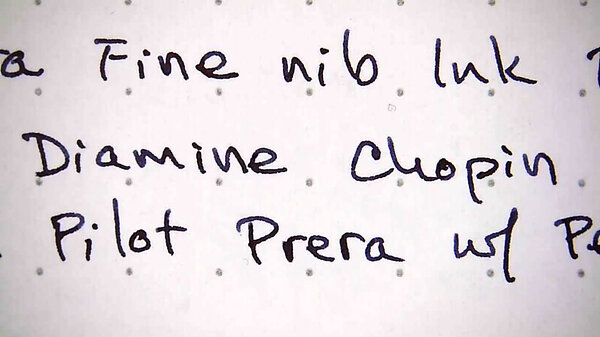 a Fine nib Ink
Diamine Chopin
Pilot Prera w/ Pe